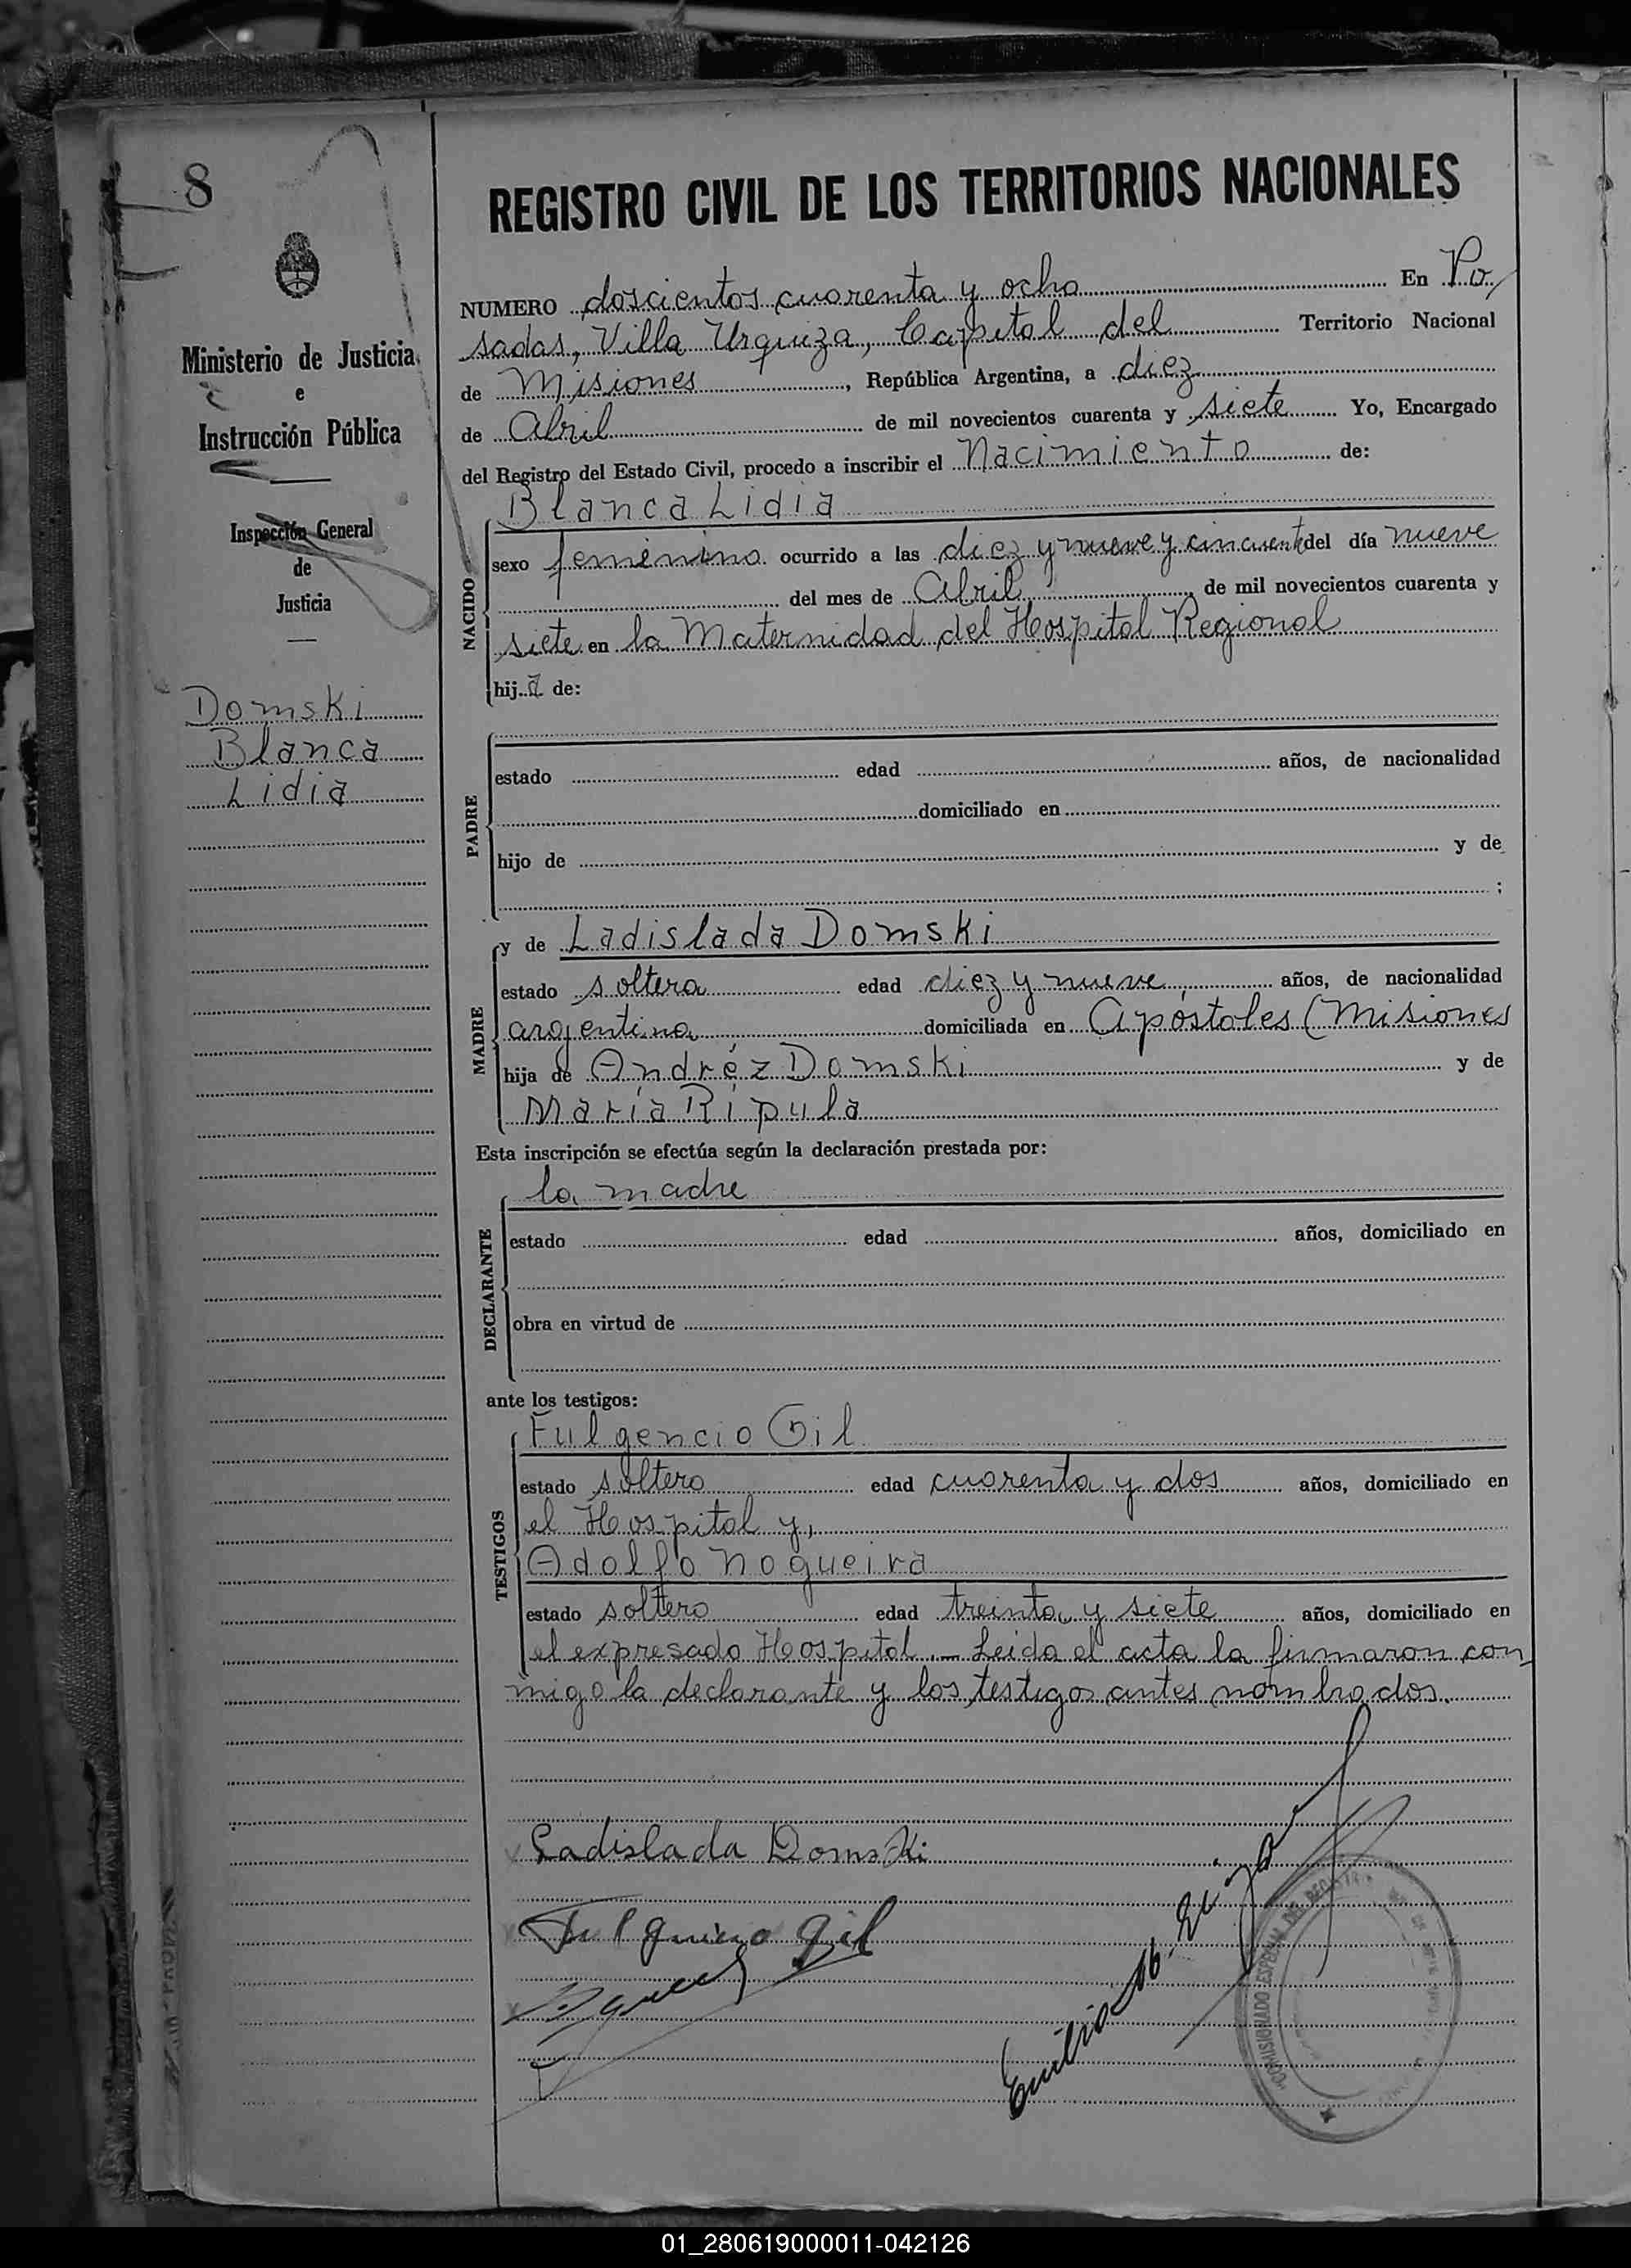 8
REGISTRO CIVIL DE LOS TERRITORIOS NACIONALES
Ministerio de Justicia
e
Instrucción Pública
Inspección General
de
Justicia
Domski
Blanca
Lidia
NUMERO doscientos cuarenta y ocho En Po
sadas, Villa Urquiza, Capital del Territorio Nacional
de Misiones, República Argentina, a diez
de Abril de mil novecientos cuarenta y siete Yo, Encargado
del Registro del Estado Civil, procedo a inscribir el Nacimiento de:
NACIDO
Blanca Lidia
sexo femenino ocurrido a las diez y nueve y cincuenta del día nueve
del mes de Abril, de mil novecientos cuarenta y
siete en la Maternidad del Hospital Regional
hija de:
PADRE
estado edad años, de nacionalidad
domiciliado en
hijo de y de
;
MADRE
y de Ladislada Domski
estado soltera edad diez y nueve, años, de nacionalidad
argentina domiciliada en Apóstoles (Misiones
hija de Andréz Domski y de
María Ripula
Esta inscripción se efectúa según la declaración prestada por:
DECLARANTE
la madre
estado edad años, domiciliado en
obra en virtud de
ante los testigos:
TESTIGOS
Fulgencio Gil
estado soltero edad cuarenta y dos años, domiciliado en
el Hospital y,
Adolfo Nogueira
estado soltero edad treinta y siete años, domiciliado en
el expresado Hospital.- Leida el acta la firmaron con
migo la declarante y los testigos antes nombrados.
Ladislada Domski
Fulgencio Gil
Emilio
COMISIONADO ESPECIAL DEL REGISTRO
01_280619000011-042126